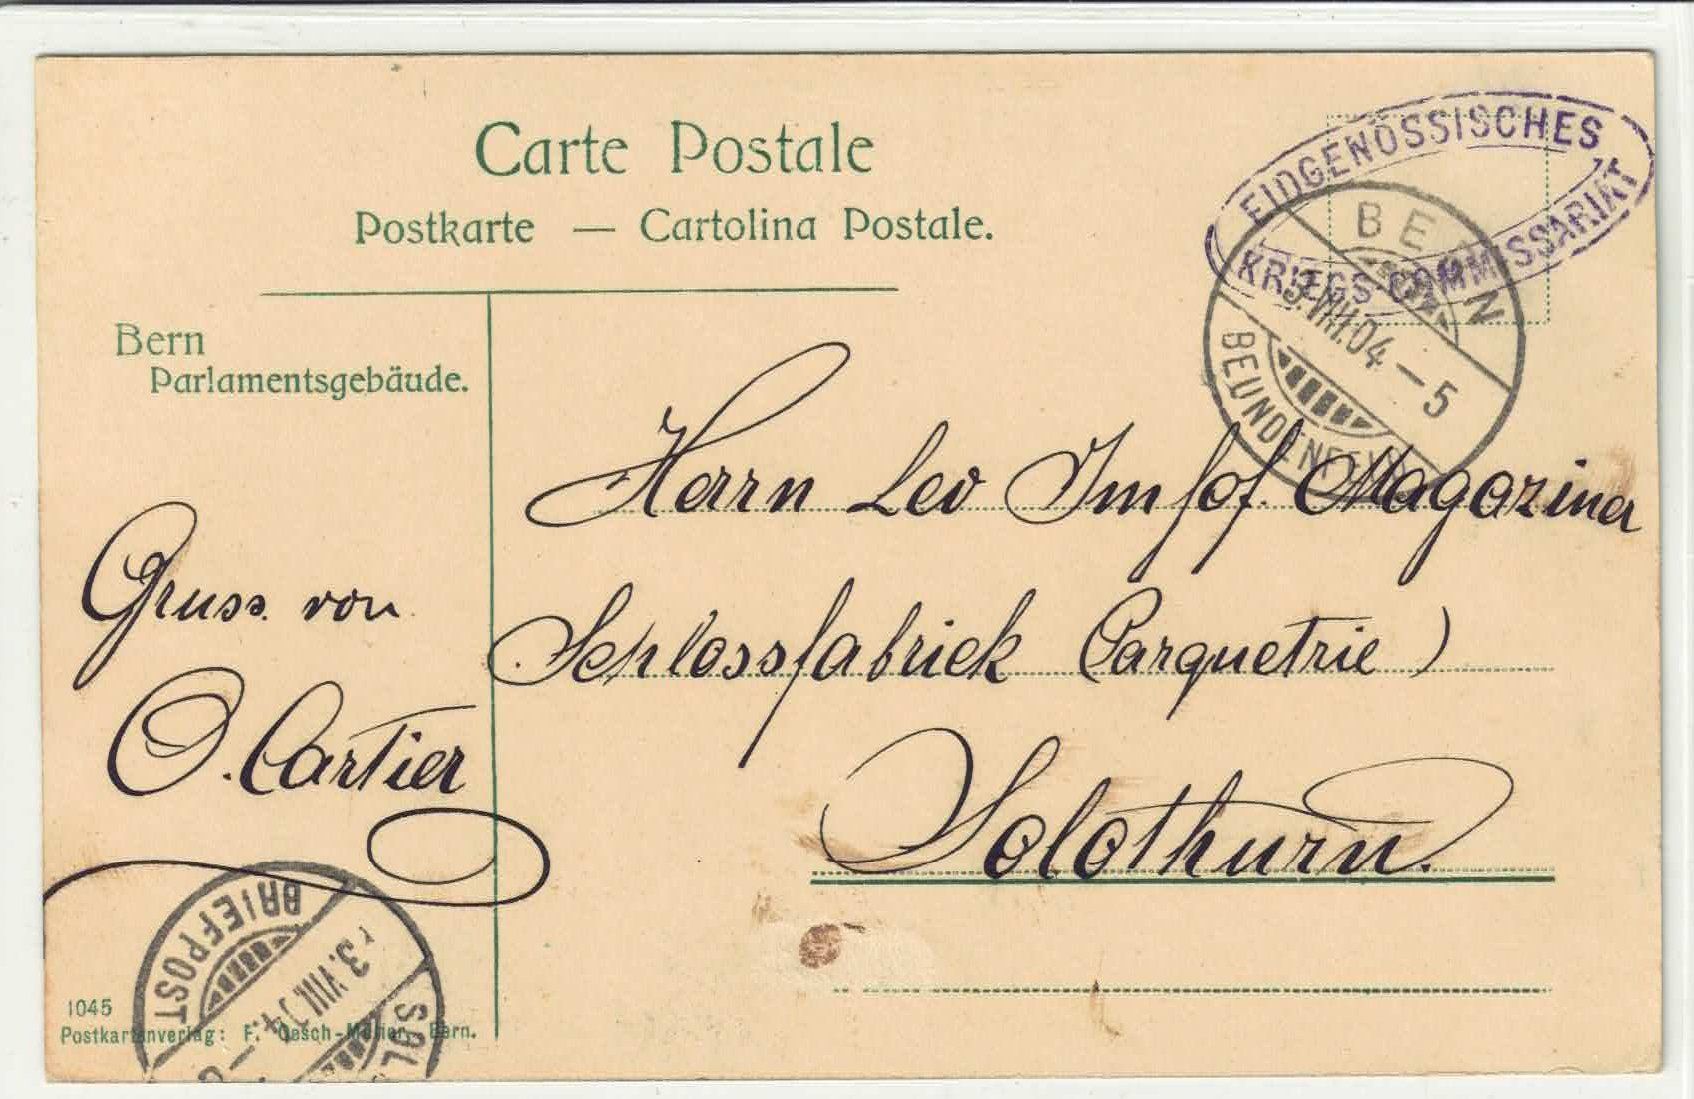 Carte Postale
Postkarte — Cartolina Postale.
EIDGENÖSSISCHES
KRIEGS-COMMISSARIAT
BERN
3.VIII.04 – 5
Bern
Parlamentsgebäude.
Herrn Leo Imhof. Magaziner
Schlossfabrick (Parquetrie)
Solothurn.
Gruss von
O. Cartier
BRIEFPOST
3.VIII.04
SOL
1045
Postkartenverlag: F. Oesch-Müller, Bern.